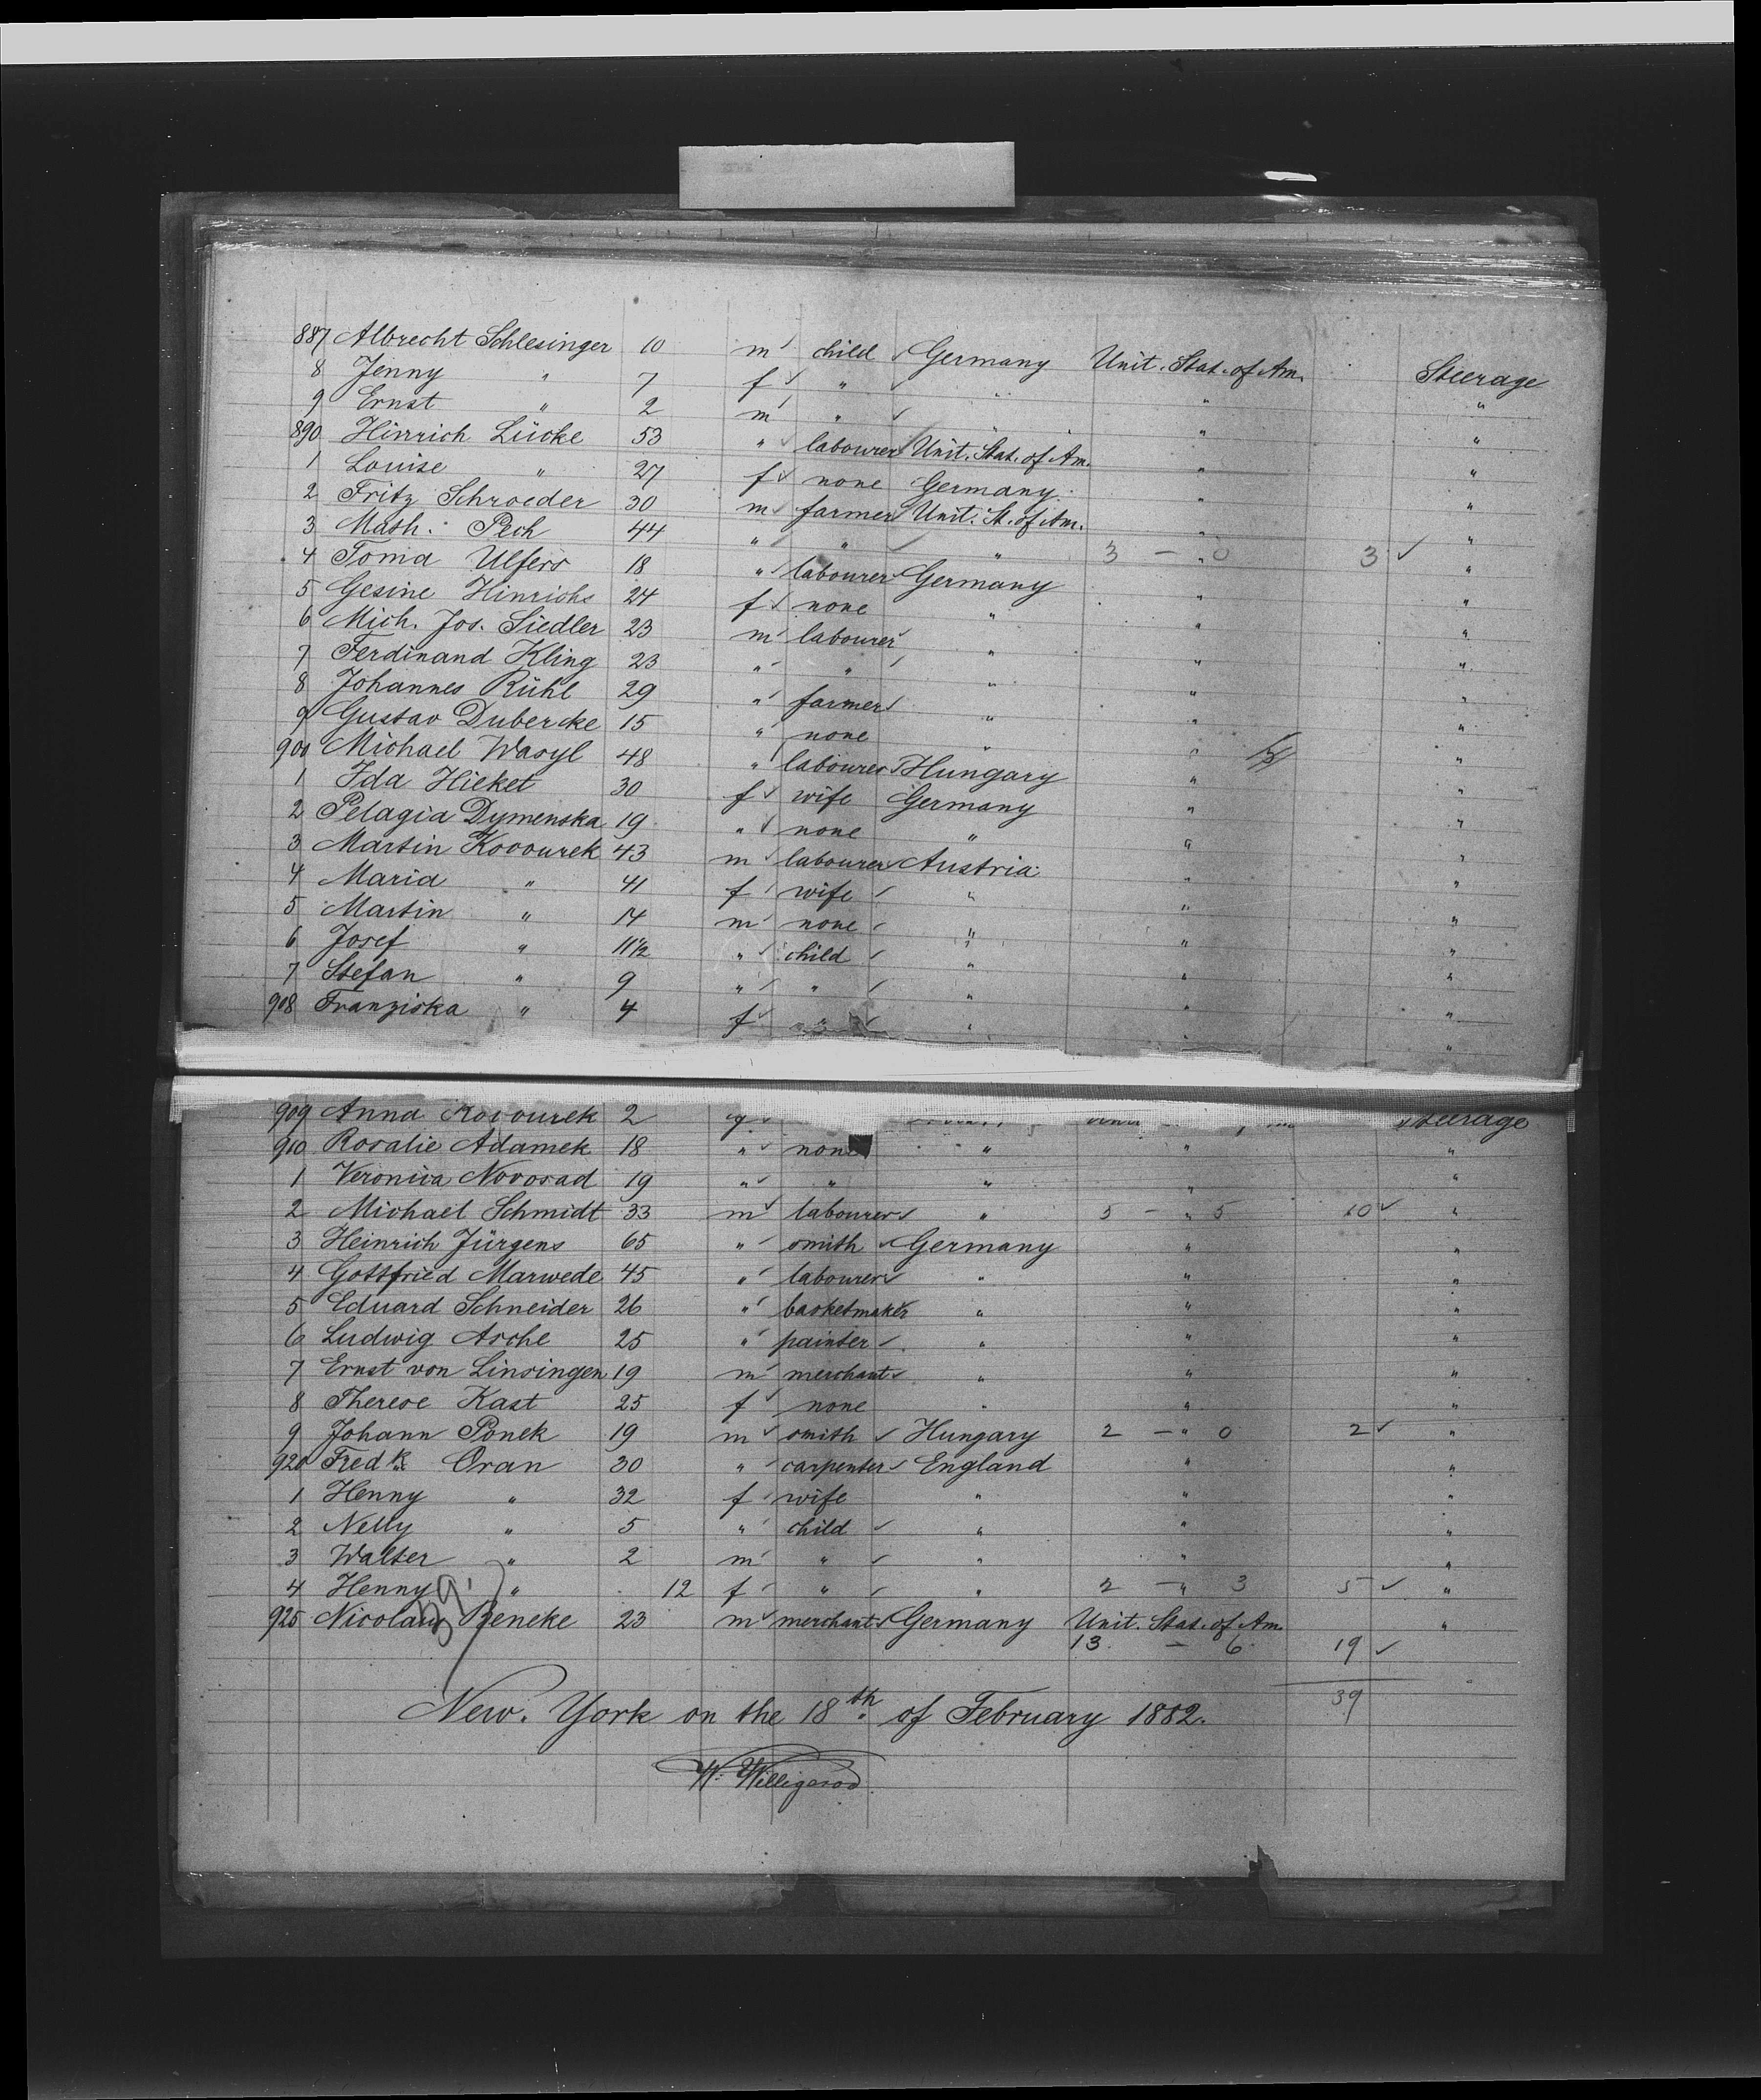 887 Albrecht Schlesinger 10 m child Germany Unit. Stat. of Am. Steerage
8 Jenny " 7 f " " " "
9 Ernst " 2 m " " " "
890 Hinrich Lücke 53 " labourer Unit. Stat. of Am. " "
1 Louise " 27 f none Germany " "
2 Fritz Schroeder 30 m farmer Unit. St. of Am. " "
3 Math. Pech 44 " " " 3 — " 0 3 "
4 Toma Ulfers 18 " labourer Germany " "
5 Gesine Hinrichs 24 f none " " "
6 Mich. Jos. Siedler 23 m labourer " " "
7 Ferdinand Kling 23 " " " " "
8 Johannes Rühl 29 " farmer " " "
9 Gustav Dubercke 15 " none " " "
900 Michael Wasyl 48 " labourer Hungary " "
1 Ida Hieket 30 f wife Germany " "
2 Pelagia Dymenska 19 " none " " "
3 Martin Kovourek 43 m labourer Austria " "
4 Maria " 41 f wife " " "
5 Martin " 14 m none " " "
6 Josef " 11½ " child " " "
7 Stefan " 9 " " " " "
908 Franziska " 4 f " " " "
909 Anna Kovourek 2 Steerage
910 Rosalie Adamek 18 " none " " "
1 Veronica Novosad 19 " " " " "
2 Michael Schmidt 33 m labourer " 5 — " 5 10 "
3 Heinrich Jürgens 65 " smith Germany " "
4 Gottfried Marwede 45 " labourer " " "
5 Eduard Schneider 26 " basketmaker " " "
6 Ludwig Asche 25 " painter " " "
7 Ernst von Linsingen 19 m merchant " " "
8 Therese Kast 25 f none " " "
9 Johann Ponek 19 m smith Hungary 2 — " 0 2 "
920 Fredk Oran 30 " carpenter England " "
1 Henny " 32 f wife " " "
2 Nelly " 5 " child " " "
3 Walter " 2 m " " " "
4 Henny " 12 f " " 2 — " 3 5 "
925 Nicolaus Beneke 23 m merchant Germany Unit. Stat. of Am. "
13 — 6 19
39
39
New. York on the 18th of February 1882.
W. Willigerod